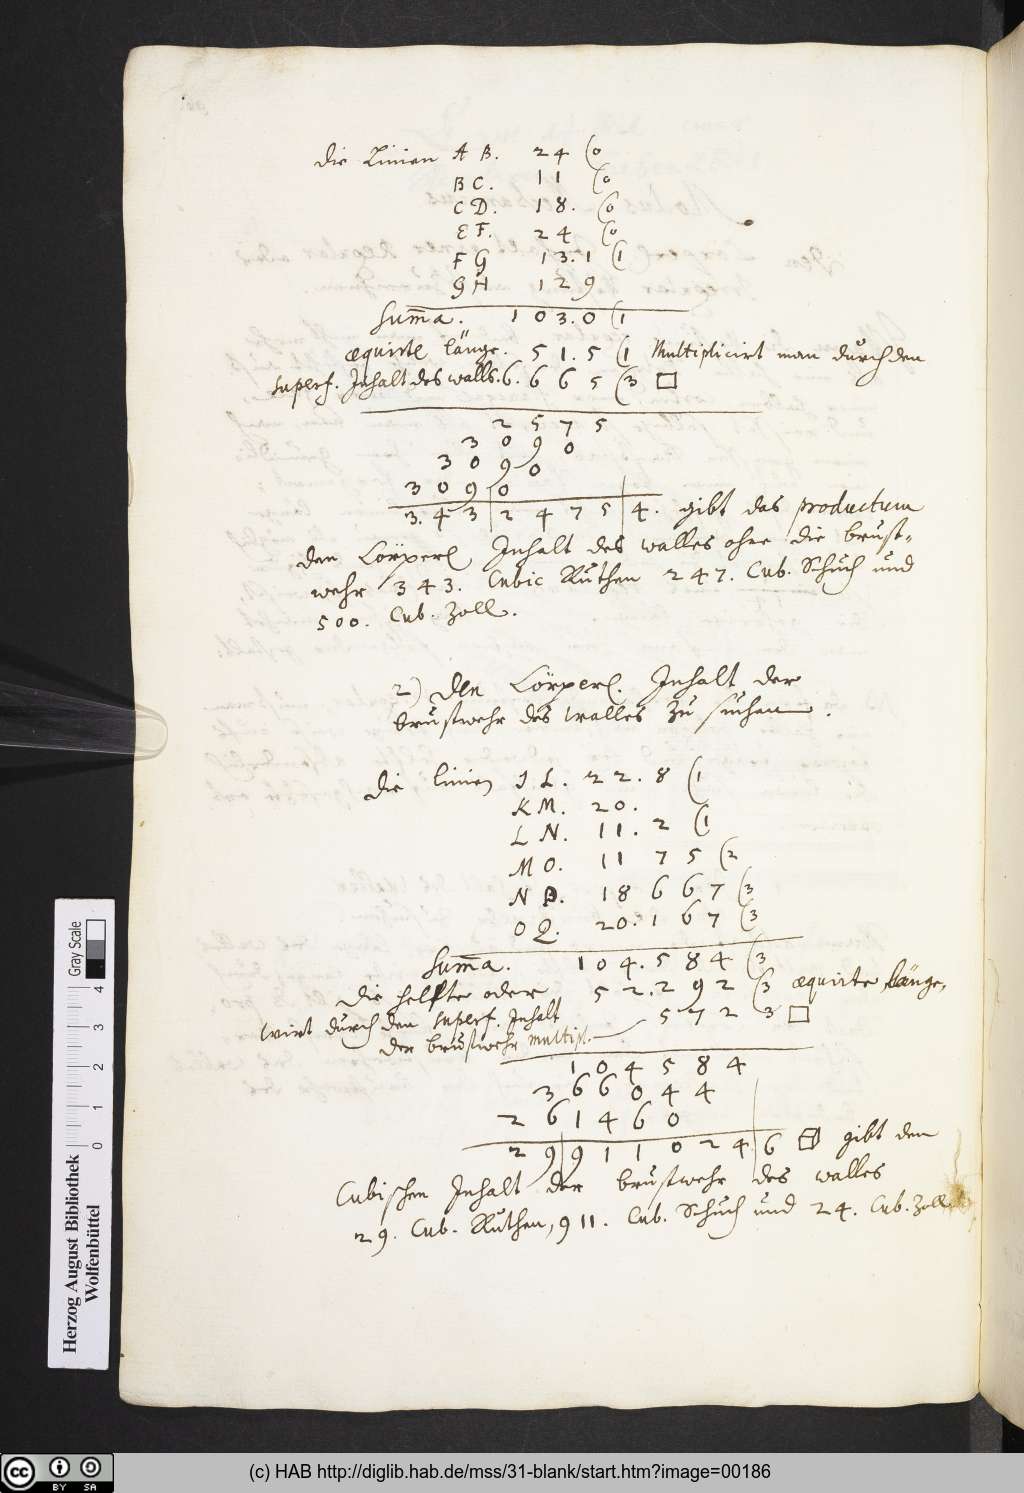 die Linien A B. 24 (0
B C. 11 (0
C D. 18. (0
E F. 24 (0
F G 13.1 (1
G H 12 9
Sum̄a. 1 0 3.0 (1
æquirte länge. 5 1.5 (1 Multiplicirt man durch den
superf. Inhalt des walls. 6. 6 6 5 (3 □
2 5 7 5
3 0 9 0
3 0 9 0
3 0 9 0
3. 4 3 | 2 4 7 5 | 4. gibt das productum
den Cörperl Inhalt des walles ohne die brust-
wehr 343. Cubic Ruthen 247. Cub. Schuch und
500. Cub. Zoll.
2) Den Cörperl. Inhalt der
brustwehr des walles zu suchen.
die linien I L. 22. 8 (1
K M. 20.
L N. 11. 2 (1
M O. 11 7 5 (2
N P. 18 6 6 7 (3
O Q. 20. 1 6 7 (3
Sum̄a. 1 0 4. 5 8 4 (3
die helfte oder 5 2. 2 9 2 (3 æquirte länge,
wirt durch den superf. Inhalt 5 7 2 3 □
der brustwehr multipl.
1 0 4 5 8 4
3 6 6 0 4 4
2 6 1 4 6 0
2 9 | 9 1 1 0 2 4 | 6 gibt den
Cubischen Inhalt der brustwehr des walles
29. Cub. Ruthen, 911. Cub. Schuch und 24. Cub. Zoll
Gray Scale
0 1 2 3 4
Herzog August Bibliothek
Wolfenbüttel
cc BY SA
(c) HAB http://diglib.hab.de/mss/31-blank/start.htm?image=00186